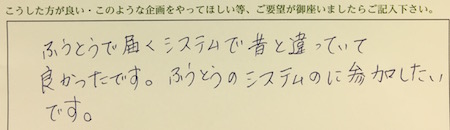 こうした方が良い・このような企画をやってほしい等、ご要望が御座いましたらご記入下さい。
ふうとうで届くシステムで昔と違っていて
良かったです。ふうとうのシステムのに参加したい
です。